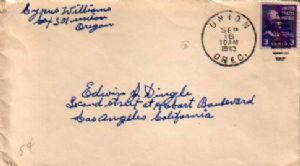 Cyrus Williams
Box 301 Union
Oregon
UNION
SEP
18
10 AM
1943
OREG.
3
Edwin J. Dingle
Second street at Hobart Boulevard
Los Angeles California
5¢